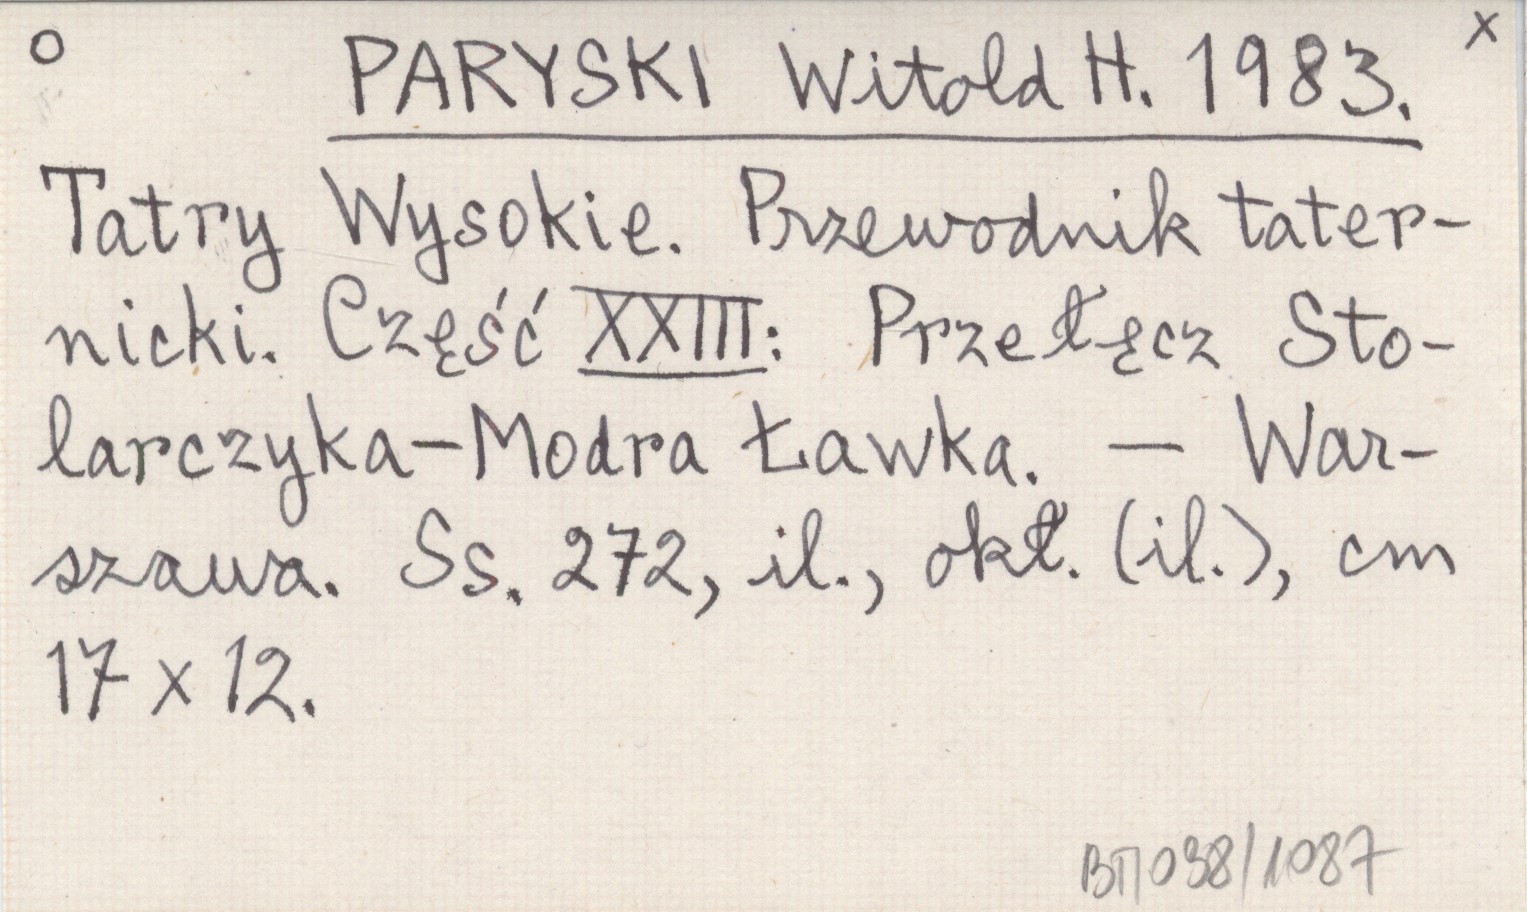 o PARYSKI Witold H. 1983. x
Tatry Wysokie. Przewodnik tater-
nicki. Część XXIII: Przełęcz Sto-
larczyka-Modra Ławka. — War-
szawa. Ss. 272, il., okł. (il.), cm
17 x 12.
ВП038/1087